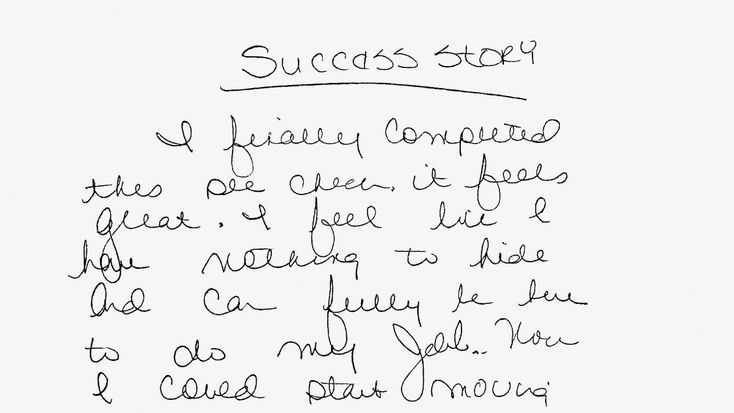 Success Story
I finally completed
this sec check. it feels
great. I feel like I
have nothing to hide
And can fully be here
to do my Job.. Now
I could start moving